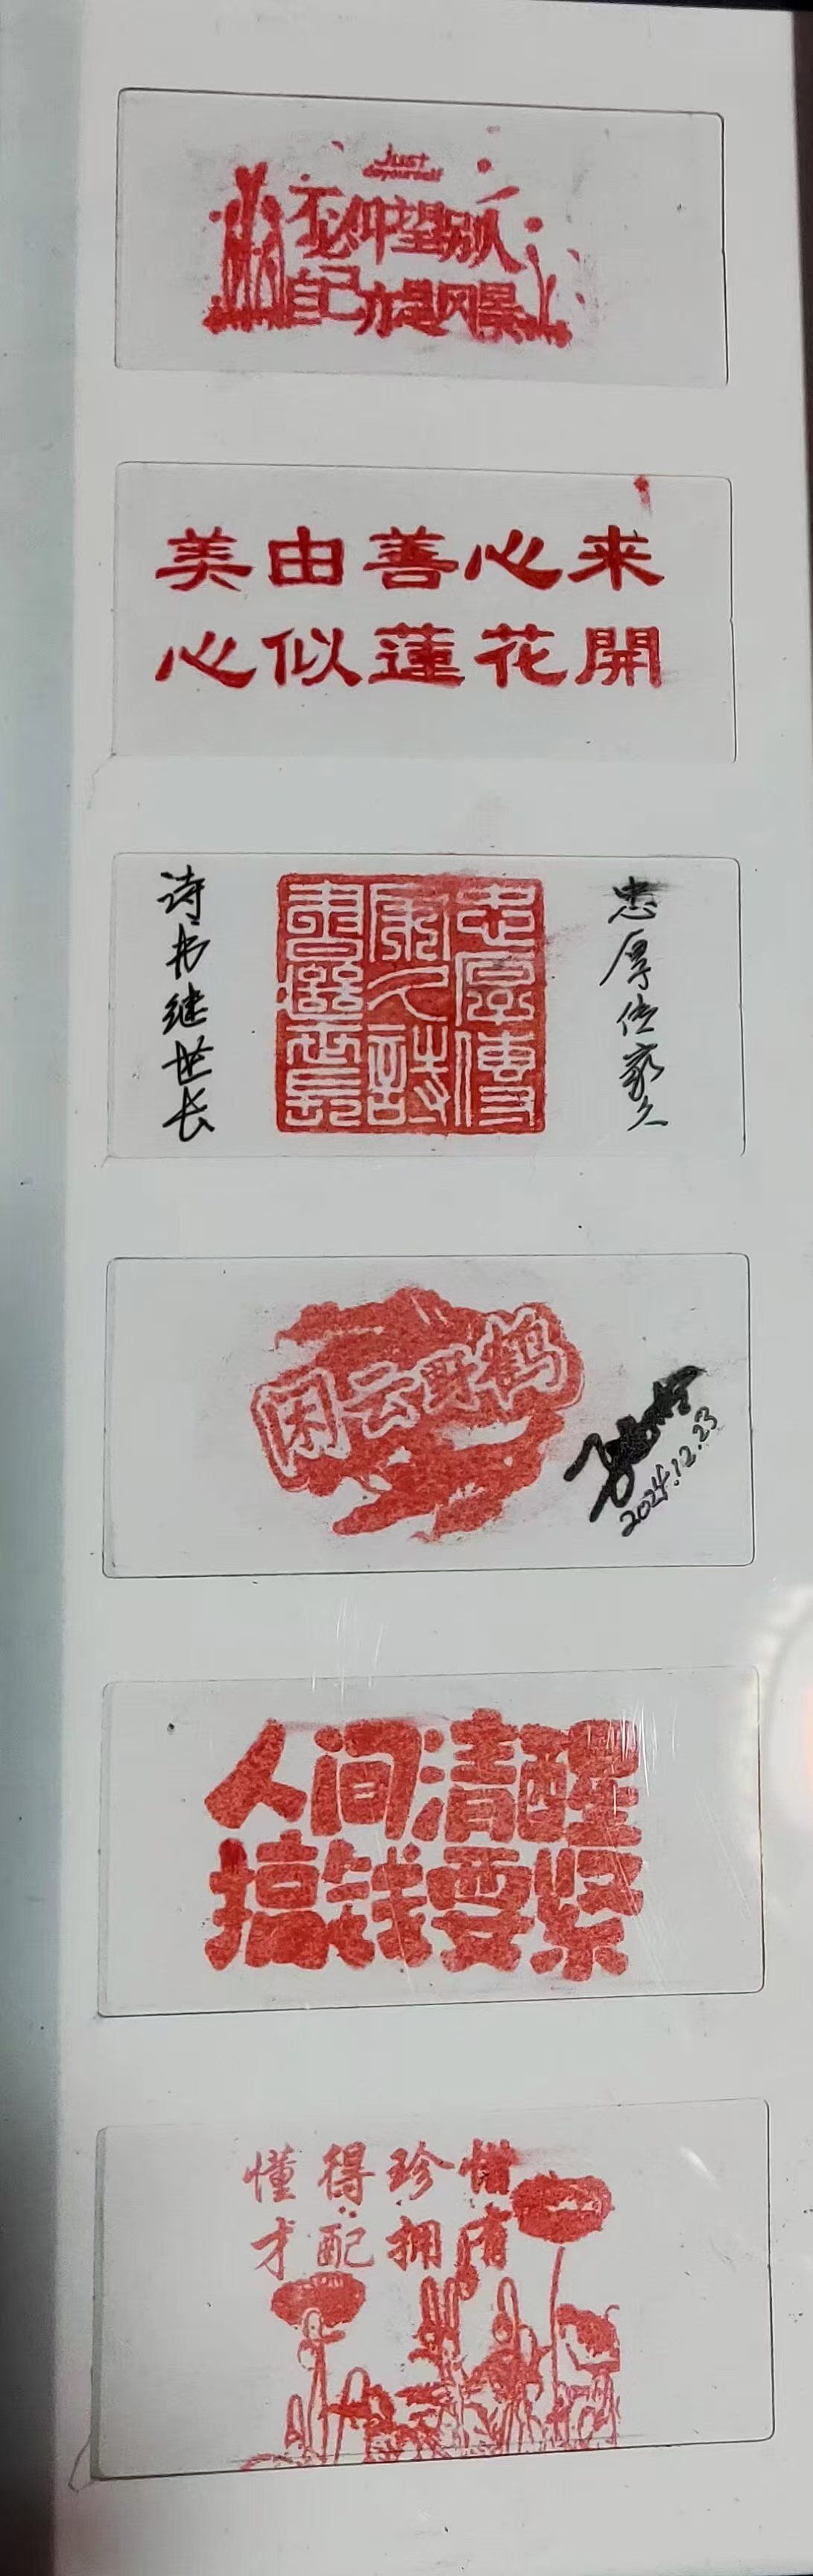 Just
doyourself
不必仰望别人
自己亦是风景
美由善心来
心似蓮花開
忠厚传家久
忠厚傳
家久詩
書繼世長
诗书继世长
闲云野鹤
2024.12.23
人间清醒
搞钱要紧
懂得珍惜
才配拥有